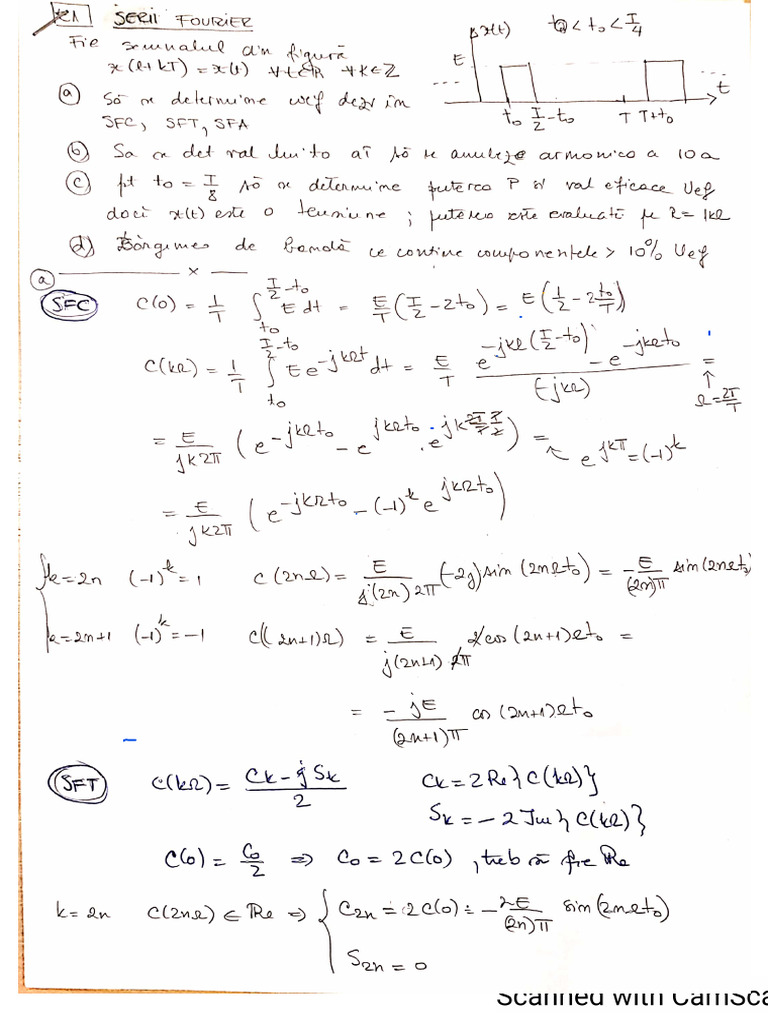 Ex1 SERII FOURIER
Fie semnalul din figură
x(t+kT) = x(t) ∀t∈ℝ ∀k∈ℤ
x(t) E 0 < t₀ < T/4
t₀ T/2-t₀ T T+t₀ t
(a) Să se determine coef dezv în
SFC, SFT, SFA
(b) Sa se det val lui to aî să se anuleze armonica a 10a
(c) pt t₀ = T/8 să se determine puterea P și val eficace Uef
dacă x(t) este o tensiune ; puterea este evaluată pe R = 1kΩ
(d) Lărgimea de bandă ce conține componentele > 10% Uef
(a) x
(SFC) C(0) = 1/T ∫_{t₀}^{T/2-t₀} E dt = E/T (T/2 - 2t₀) = E(1/2 - 2 t₀/T)
C(kΩ) = 1/T ∫_{t₀}^{T/2-t₀} E e^{-jkΩt} dt = E/T (e^{-jkΩ(T/2-t₀)} - e^{-jkΩt₀})/(-jkΩ) = ↑ Ω = 2π/T
= E/(jk2π) (e^{-jkΩt₀} - e^{jkΩt₀} · e^{jk 2π/T T/2}) = ↖ e^{jkπ} = (-1)^k
= E/(jk2π) (e^{-jkΩt₀} - (-1)^k e^{jkΩt₀})
k = 2n (-1)^k = 1 C(2nΩ) = E/(j(2n)2π) (-2j) sin(2nΩt₀) = -E/((2n)π) sin(2nΩt₀)
k = 2n+1 (-1)^k = -1 C((2n+1)Ω) = E/(j(2n+1)2π) 2 cos(2n+1)Ωt₀ =
= -jE/((2n+1)π) cos(2n+1)Ωt₀
(SFT) C(kΩ) = (Ck - jSk)/2 Ck = 2 Re{C(kΩ)}
Sk = -2 Im{C(kΩ)}
C(0) = C₀/2 ⇒ C₀ = 2C(0) , treb să fie Re
k = 2n C(2nΩ) ∈ Re ⇒ { C₂ₙ = 2C(0) = -2E/((2n)π) sin(2nΩt₀)
S₂ₙ = 0
Scanned with CamSca